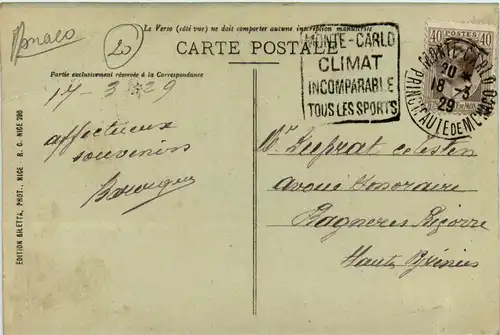 Monaco
20
Le Verso (côté vue) ne doit comporter aucune inscription manuscrite
CARTE POSTALE
Partie exclusivement réservée à la Correspondance
17-3-29
affectueux
souvenirs
MONTE-CARLO
CLIMAT
INCOMPARABLE
TOUS LES SPORTS
40 POSTES 40
MONTE-CARLO
20 *
18-3
29
PRINCIPAUTÉ DE MONACO
Mr Duprat Celestin
avoué honoraire
Bagneres Bigorre
Hautes Pyrénées
ÉDITION GILETTA, PHOT., NICE R. C. NICE 290